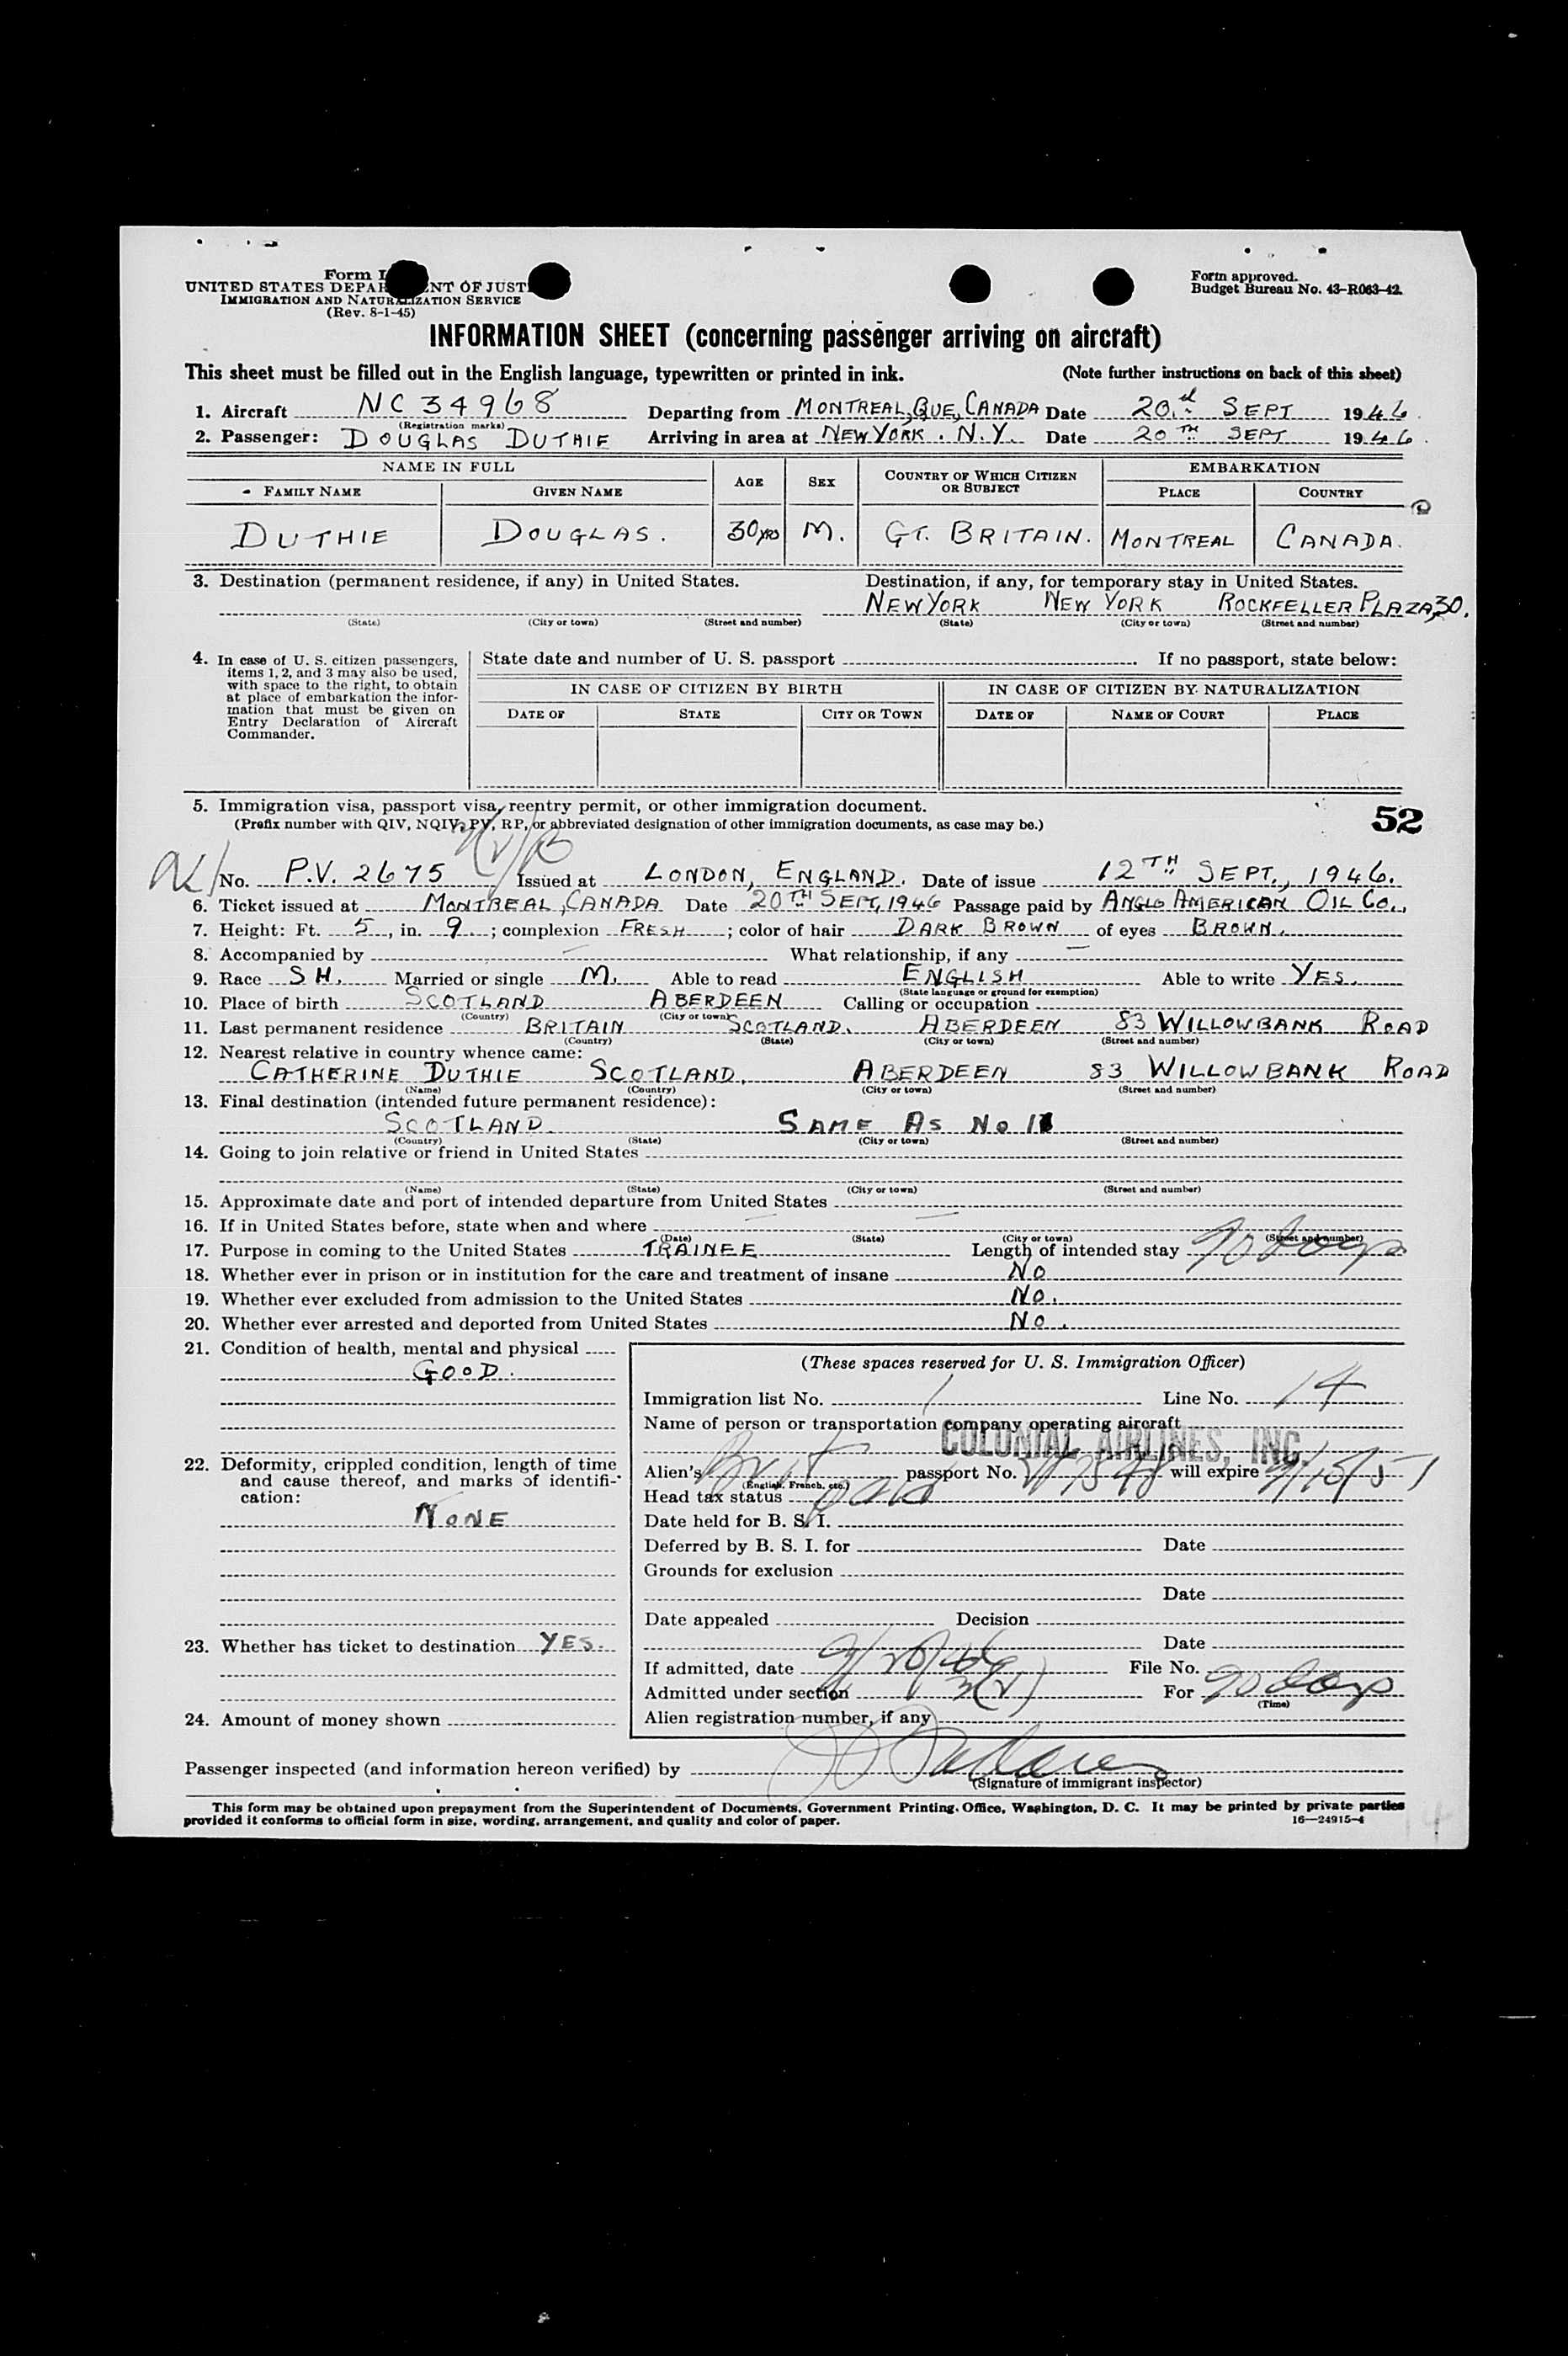 Form I
UNITED STATES DEPA NT OF JUST
IMMIGRATION AND NATURALIZATION SERVICE
(Rev. 8-1-45)
Form approved.
Budget Bureau No. 43-R063-42.
INFORMATION SHEET (concerning passenger arriving on aircraft)
This sheet must be filled out in the English language, typewritten or printed in ink. (Note further instructions on back of this sheet)
1. Aircraft NC 34968 Departing from MONTREAL, QUE, CANADA Date 20.d SEPT 1946.
(Registration marks)
2. Passenger: DOUGLAS DUTHIE Arriving in area at NEW YORK. N.Y. Date 20TH SEPT 1946.
NAME IN FULL AGE SEX COUNTRY OF WHICH CITIZEN OR SUBJECT EMBARKATION
FAMILY NAME GIVEN NAME PLACE COUNTRY
DUTHIE DOUGLAS. 30 yrs M. GT. BRITAIN. MONTREAL CANADA.
3. Destination (permanent residence, if any) in United States. Destination, if any, for temporary stay in United States.
NEW YORK NEW YORK ROCKFELLER PLAZA, 30.
(State) (City or town) (Street and number) (State) (City or town) (Street and number)
4. In case of U. S. citizen passengers, items 1, 2, and 3 may also be used, with space to the right, to obtain at place of embarkation the information that must be given on Entry Declaration of Aircraft Commander.
State date and number of U. S. passport . If no passport, state below:
IN CASE OF CITIZEN BY BIRTH IN CASE OF CITIZEN BY NATURALIZATION
DATE OF STATE CITY OR TOWN DATE OF NAME OF COURT PLACE
5. Immigration visa, passport visa, reentry permit, or other immigration document.
(Prefix number with QIV, NQIV, PV, RP, or abbreviated designation of other immigration documents, as case may be.)
52
No. P.V. 2675 Issued at LONDON, ENGLAND. Date of issue 12TH SEPT., 1946.
6. Ticket issued at MONTREAL, CANADA Date 20TH SEPT, 1946 Passage paid by ANGLO AMERICAN OIL CO.,
7. Height: Ft. 5, in. 9.; complexion FRESH; color of hair DARK BROWN of eyes BROWN.
8. Accompanied by — What relationship, if any —
9. Race SH. Married or single M. Able to read ENGLISH Able to write YES.
(State language or ground for exemption)
10. Place of birth SCOTLAND ABERDEEN Calling or occupation
(Country) (City or town)
11. Last permanent residence BRITAIN SCOTLAND. ABERDEEN 83 WILLOWBANK ROAD
(Country) (State) (City or town) (Street and number)
12. Nearest relative in country whence came:
CATHERINE DUTHIE SCOTLAND. ABERDEEN 83 WILLOWBANK ROAD
(Name) (Country) (City or town) (Street and number)
13. Final destination (intended future permanent residence):
SCOTLAND SAME AS NO 11
(Country) (State) (City or town) (Street and number)
14. Going to join relative or friend in United States
(Name) (State) (City or town) (Street and number)
15. Approximate date and port of intended departure from United States
16. If in United States before, state when and where — —
(Date) (State) (City or town) (Street and number)
17. Purpose in coming to the United States TRAINEE Length of intended stay 90 days
18. Whether ever in prison or in institution for the care and treatment of insane NO
19. Whether ever excluded from admission to the United States NO.
20. Whether ever arrested and deported from United States NO.
21. Condition of health, mental and physical
GOOD.
22. Deformity, crippled condition, length of time and cause thereof, and marks of identification:
NONE
23. Whether has ticket to destination YES.
24. Amount of money shown
(These spaces reserved for U. S. Immigration Officer)
Immigration list No. 1 Line No. 14
Name of person or transportation company operating aircraft
COLONIAL AIRLINES, INC.
Alien's Brit passport No. will expire 9/15/51
(English, French, etc.)
Head tax status paid
Date held for B. S. I.
Deferred by B. S. I. for Date
Grounds for exclusion
Date
Date appealed Decision
Date
If admitted, date 9/20/46 File No.
Admitted under section 3(2) For 90 days
(Time)
Alien registration number, if any
Passenger inspected (and information hereon verified) by
(Signature of immigrant inspector)
This form may be obtained upon prepayment from the Superintendent of Documents, Government Printing Office, Washington, D. C. It may be printed by private parties
provided it conforms to official form in size, wording, arrangement, and quality and color of paper. 16—24915-4